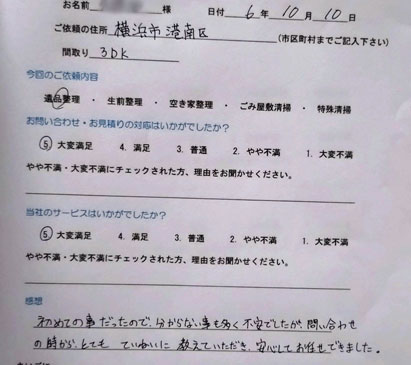 お名前 様 日付 6年10月10日
ご依頼の住所 横浜市港南区 (市区町村までご記入下さい)
間取り 3DK
今回のご依頼内容
遺品整理 ・ 生前整理 ・ 空き家整理 ・ ごみ屋敷清掃 ・ 特殊清掃
お問い合わせ・お見積りの対応はいかがでしたか?
5. 大変満足 4. 満足 3. 普通 2. やや不満 1. 大変不満
やや不満・大変不満にチェックされた方、理由をお聞かせください。
当社のサービスはいかがでしたか?
5. 大変満足 4. 満足 3. 普通 2. やや不満 1. 大変不満
やや不満・大変不満にチェックされた方、理由をお聞かせください。
感想
初めての事だったので、分からない事も多く不安でしたが、問い合わせ
の時から、とても ていねいに 教えていただき、安心してお任せできました。